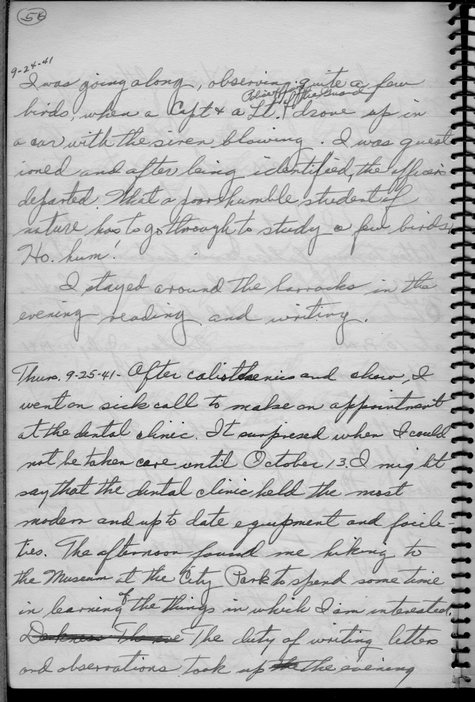 56
9-24-41
I was going along, observing quite a few
birds, when a Capt & a Lt. drove up in
a car with the siren blowing. I was quest
ioned and after being identified, the officers
departed. What a poor humble student of
nature has to go through to study a few birds,
Ho. hum!
I stayed around the barracks in the
evening reading and writing.
Thurs. 9-25-41- After calisthenics and chow, I
went on sick call to make an appointment
at the dental clinic. It surpresed when I could
not be taken care until October 13. I might
say that the dental clinic held the most
modern and up to date equipment and facile-
ties. The afternoon found me hiking to
the Museum at the City Park to spend some time
in learning of the things in which I am interested.
The duty of writing letters
and observations took up the evening